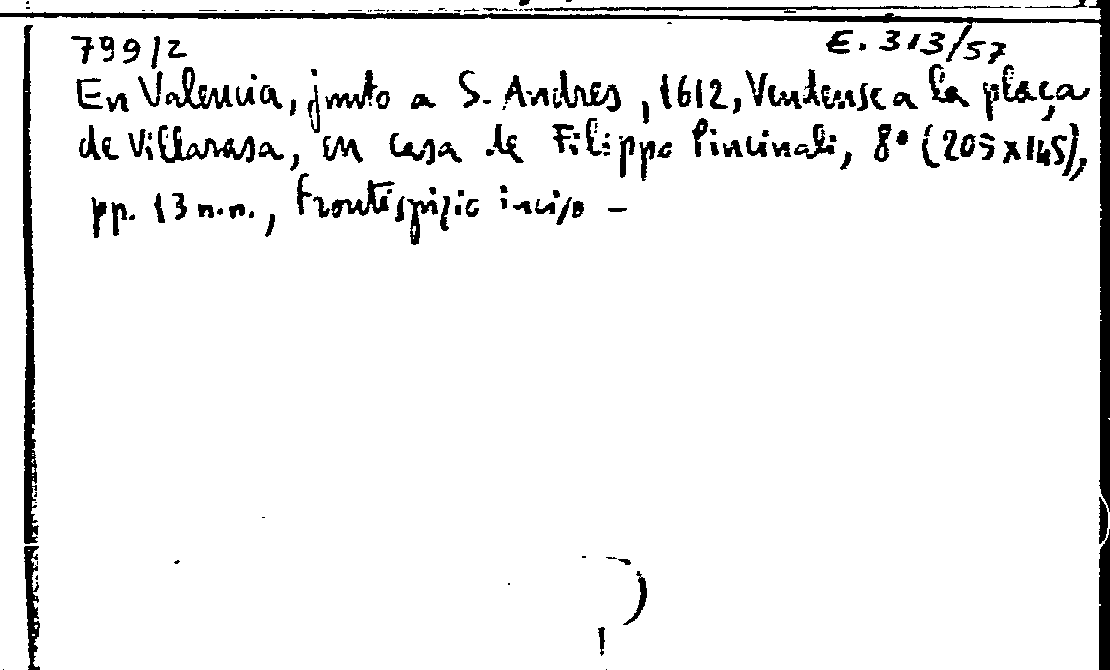 799/2 E. 313/57
En Valencia, junto a S. Andres, 1612, Vendense a la plaça
de Villarasa, en casa de Filippo Pincinali, 8° (205x145),
pp. 13 n.n., frontespizio inciso —